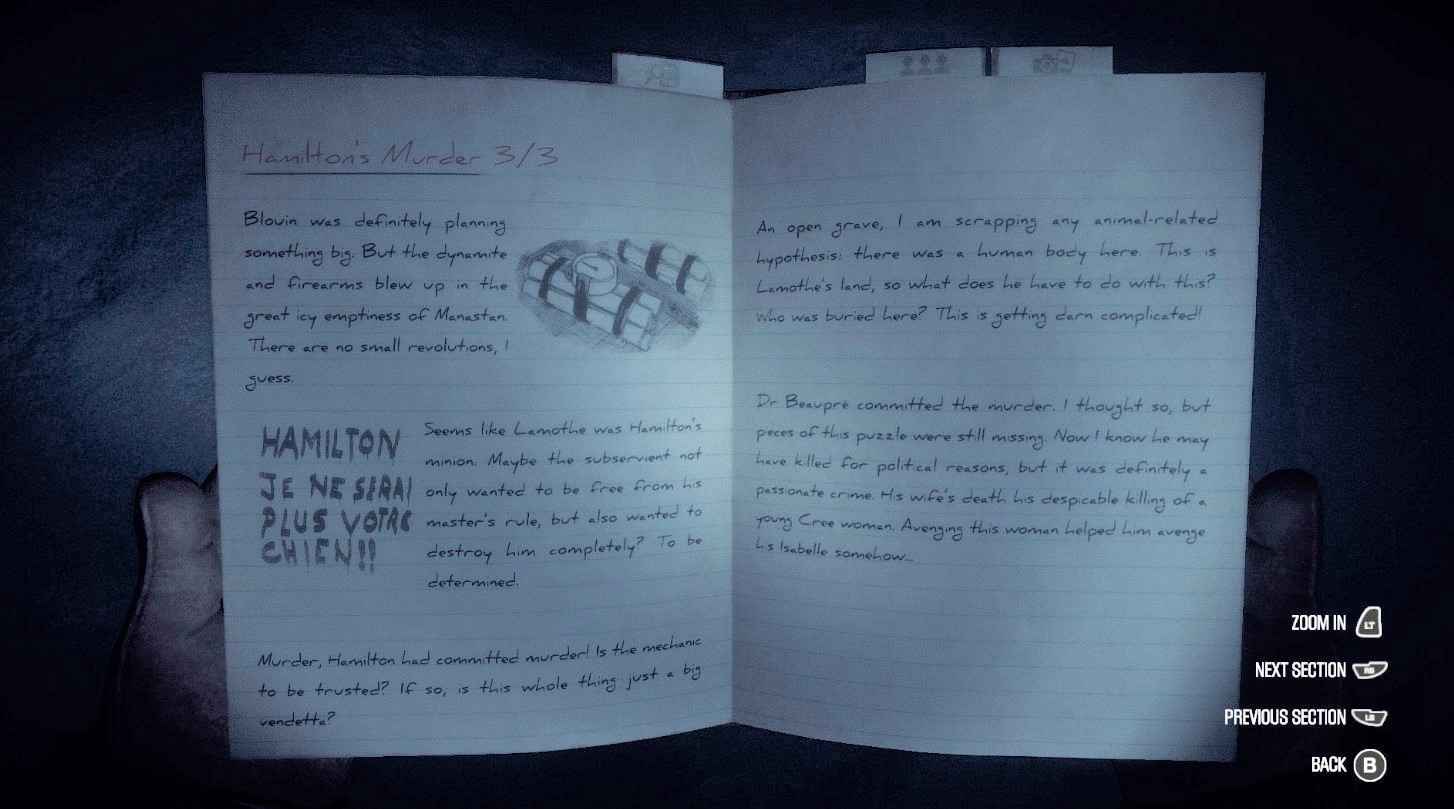 Hamilton's Murder 3/3
Blouin was definitely planning
something big. But the dynamite
and firearms blew up in the
great icy emptiness of Manastan.
There are no small revolutions, I
guess.
HAMILTON
JE NE SERAI
PLUS VOTRE
CHIEN!!
Seems like Lamothe was Hamilton's
minion. Maybe the subservient not
only wanted to be free from his
master's rule, but also wanted to
destroy him completely? To be
determined.
Murder, Hamilton had committed murder! Is the mechanic
to be trusted? If so, is this whole thing just a big
vendetta?
An open grave, I am scrapping any animal-related
hypothesis: there was a human body here. This is
Lamothe's land, so what does he have to do with this?
Who was buried here? This is getting darn complicated!
Dr Beaupre committed the murder. I thought so, but
peces of this puzzle were still missing. Now I know he may
have killed for political reasons, but it was definitely a
passionate crime. His wife's death his despicable killing of a
young Cree woman. Avenging this woman helped him avenge
his Isabelle somehow...
ZOOM IN LT
NEXT SECTION RB
PREVIOUS SECTION LB
BACK B